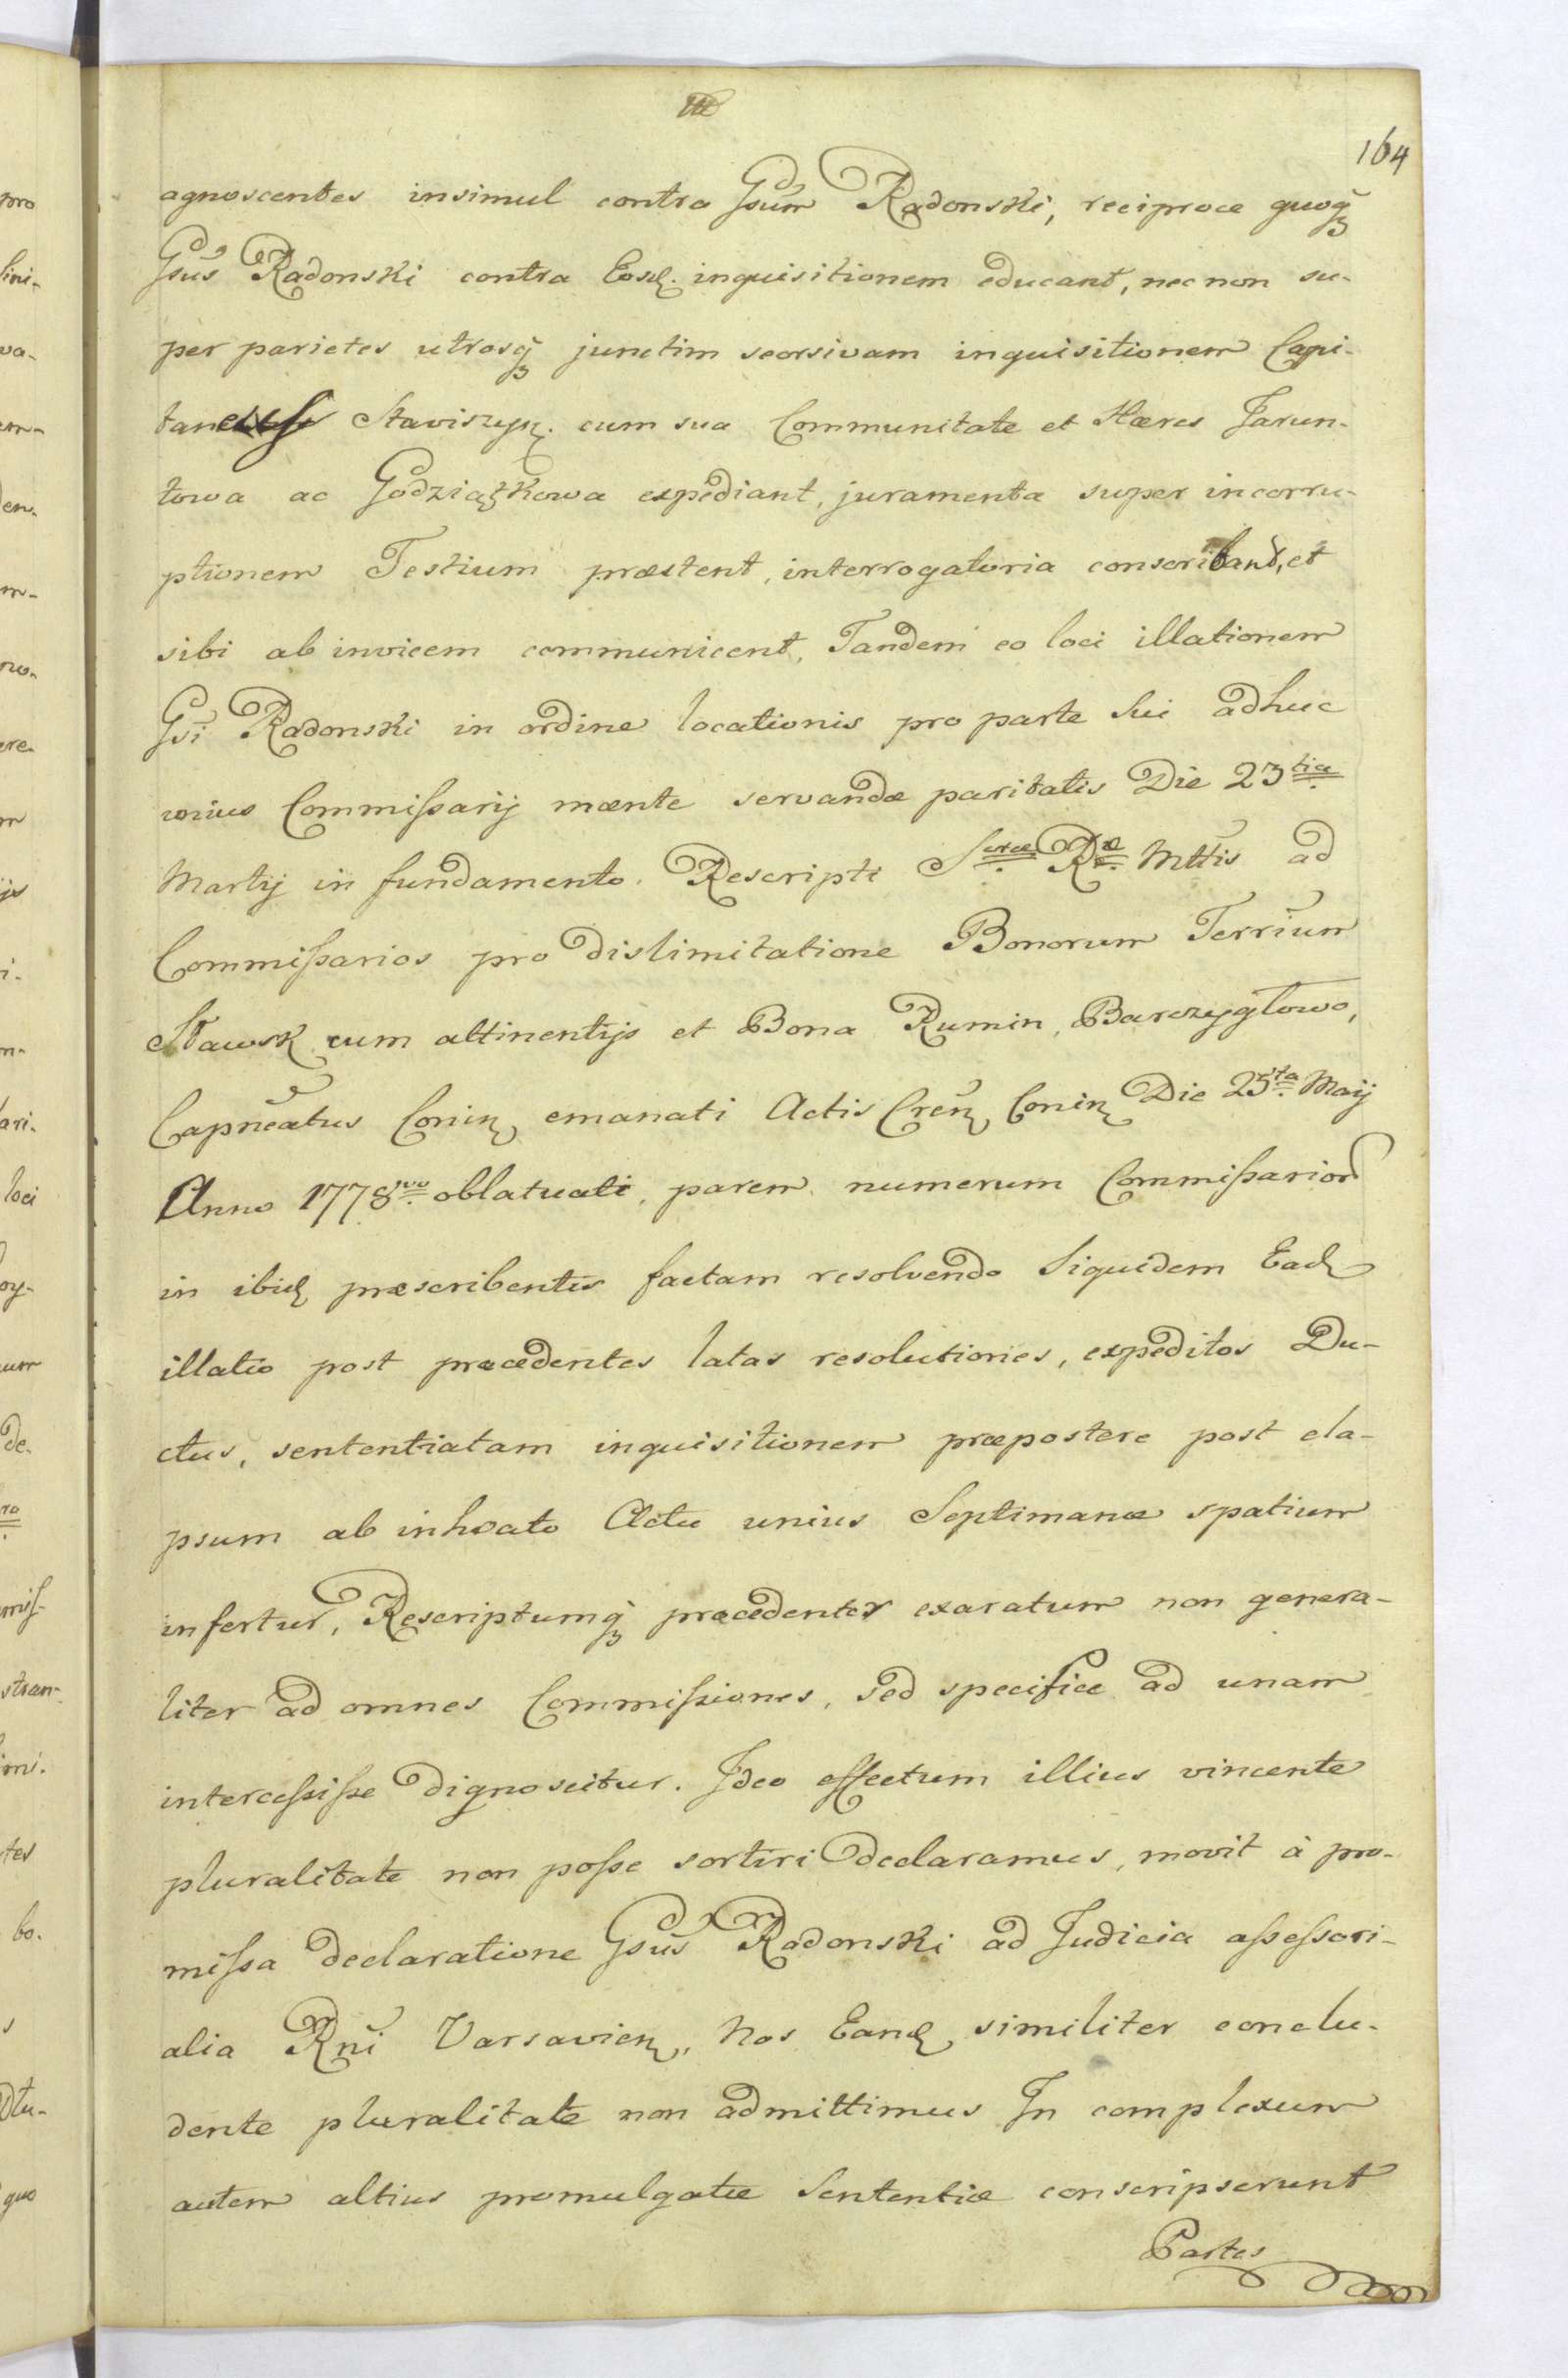 164
agnoscentes insimul contra Gsum Radonski, reciproce quoq
Gsus Radonski contra Eosd. inquisitionem educant, necnon su-
per parietes utrosq junctim seorsivam inquisitionem Capi-
Staviszyn. cum sua Communitate et Hæres Jarun-
towa ac Godziątkowa expediant, juramenta super incorru-
ptionem Testium præstent, interrogatoria conscribant, et
sibi ab invicem communicent, Tandem eo loci illationem
Gsi Radonski in ordine locationis pro parte Sui adhuc
unius Commißarij mænte servandæ paritatis Die 23tia
Martij in fundamento Rescripti Scræ Ræ Mttis ad
Commißarios pro dislimitatione Bonorum Terrium
Sławsk cum attinentijs et Bona Rumin, Barczygłowo,
Capneatus Conin emanati Actis Cren Conin Die 25ta Maij
Anno 1778vo oblatuati, parem numerum Commißarior
in ibid præscribentis factam resolvendo Siquidem Ead
illatio post præcedentes latas resolutiones, expeditos Du-
ctus, sententiatam inquisitionem præpostere post ela-
psum ab inhoato Actu unius Septimanæ spatium
infertur, Rescriptumq præcedenter exaratum non genera-
liter ad omnes Commißiones, sed specifice ad unam
interceßiße dignoscitur. Ideo effectum illius vincente
pluralitate non poße sortiri declaramus, movit à pro-
mißa declaratione Gsus Radonski ad Judicia aßeßori-
alia Rni Varsavien, Nos Eand similiter conclu-
dente pluralitate non admittimus In complexum
autem altius promulgatæ Sententiæ conscripserunt
Partes